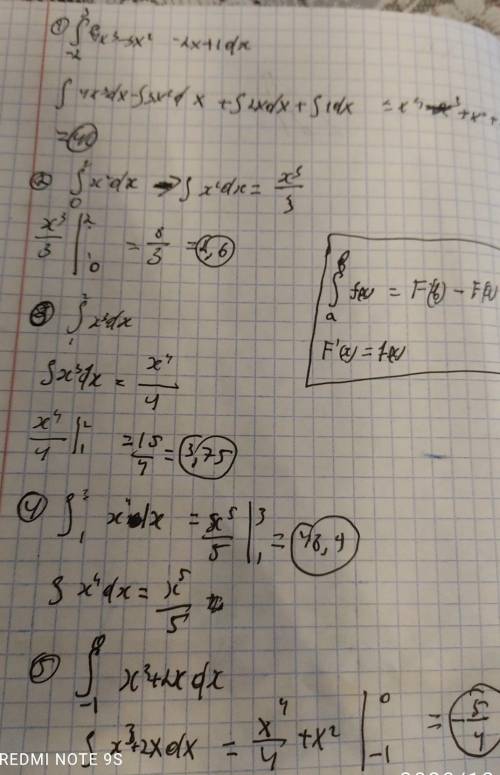 ① ∫₋₂³ 4x³-3x² -2x+1dx
∫4x³dx-∫3x²dx+∫2xdx+∫1dx = x⁴-x³+x²+
=40
② ∫₀² x²dx → ∫x²dx = x³/3
x³/3 |₀² = 8/3 = 2,6
∫ₐᵇ f(x) = F(b) - F(a)
F'(x) = f(x)
③ ∫₁² x³dx
∫x³dx = x⁴/4
x⁴/4 |₁² = 15/4 = 3,75
④ ∫₁³ x⁴dx = x⁵/5 |₁³ = 48,4
∫x⁴dx = x⁵/5
⑤ ∫₋₁⁰ x³+2xdx
∫x³+2xdx = x⁴/4 + x² |₋₁⁰ = -5/4
REDMI NOTE 9S